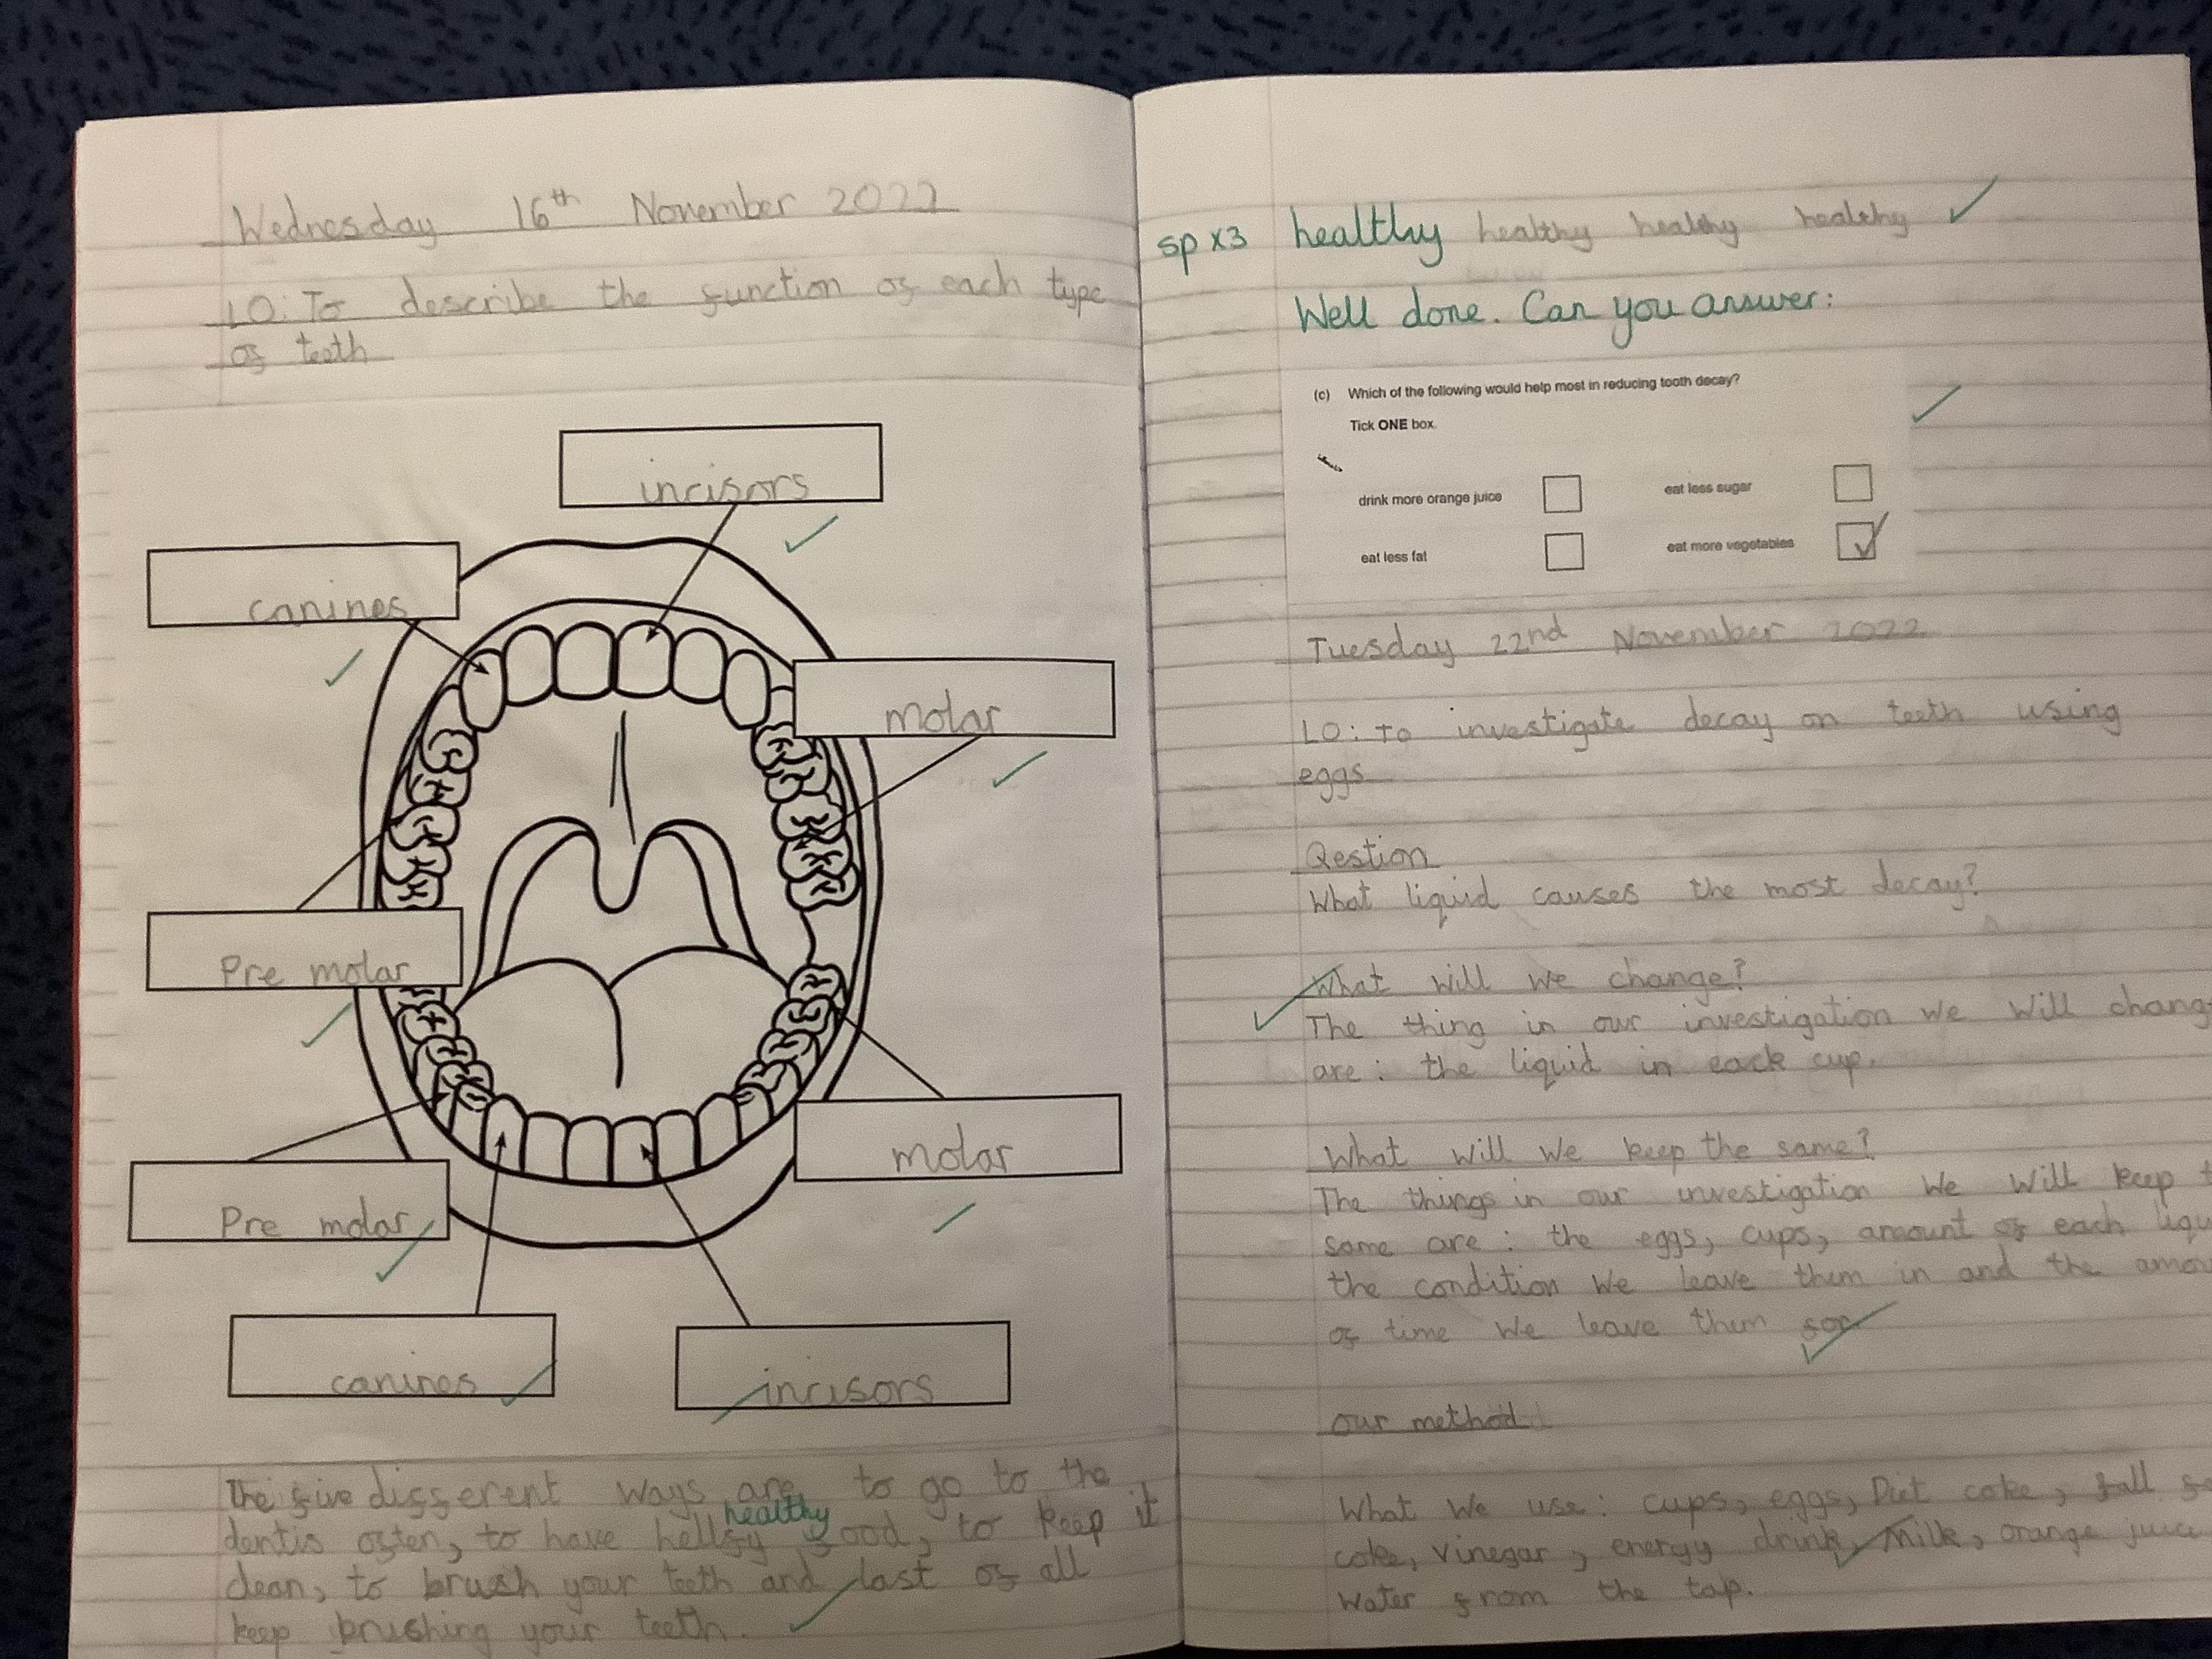 Wednesday 16th November 2022
LO: To describe the function of each type
of teeth
incisors
canines
molar
Pre molar
molar
Pre molar
canines
incisors
The five different ways are to go to the
healthy
dentis often, to have helfsy food, to keep it
clean, to brush your teeth and last of all
keep brushing your teeth.
sp x3 healthy healthy healthy healthy
Well done. Can you answer:
(c) Which of the following would help most in reducing tooth decay?
Tick ONE box.
drink more orange juice
eat less sugar
eat less fat
eat more vegetables
Tuesday 22nd November 2022
LO: To investigate decay on teeth using
eggs
Qestion
What liquid causes the most decay?
What will we change?
The thing in our investigation we will chang
are: the liquid in each cup.
What will we keep the same?
The things in our investigation we will keep t
same are: the eggs, cups, amount of each liqu
the condition we leave them in and the amou
of time we leave them for
our method
What we use: cups, eggs, Diet coke, fall
coke, vinegar, energy drink, Milk, orange juice
water from the tap.